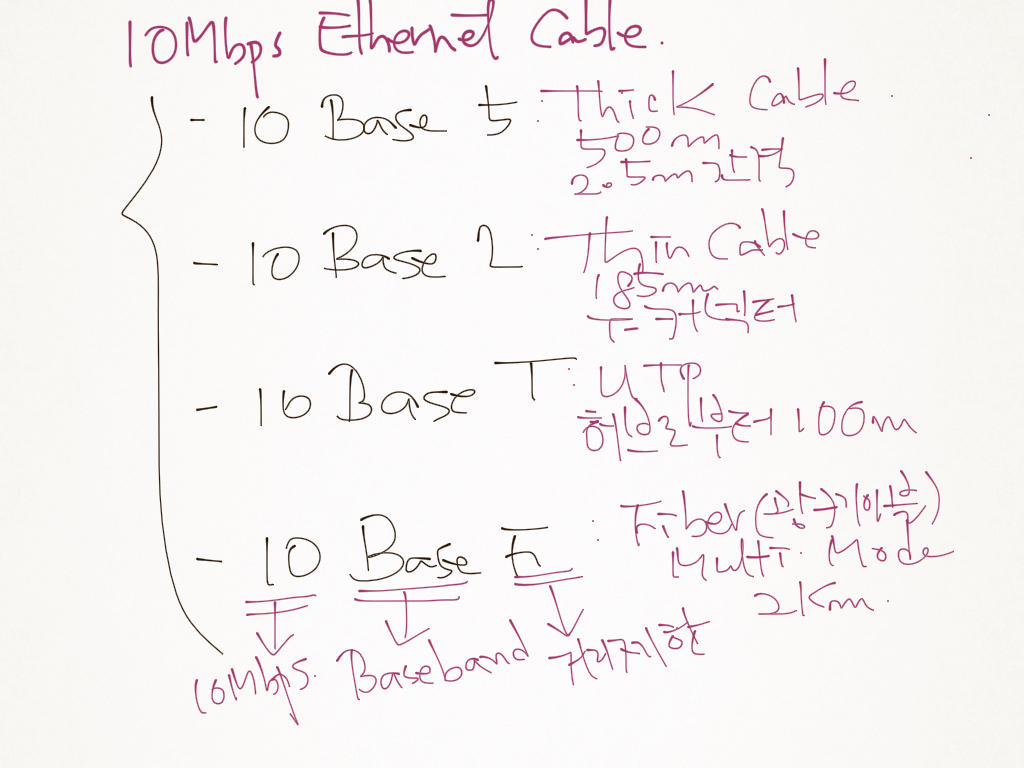 10Mbps Ethernet Cable.
- 10 Base 5 : Thick Cable.
500m
2.5m 간격
- 10 Base 2 : Thin Cable
185m
T-커넥터
- 10 Base T : UTP
허브로부터 100m
- 10 Base F : Fiber (광케이블)
Multi. Mode
2Km.
10Mbps. Baseband 거리제한